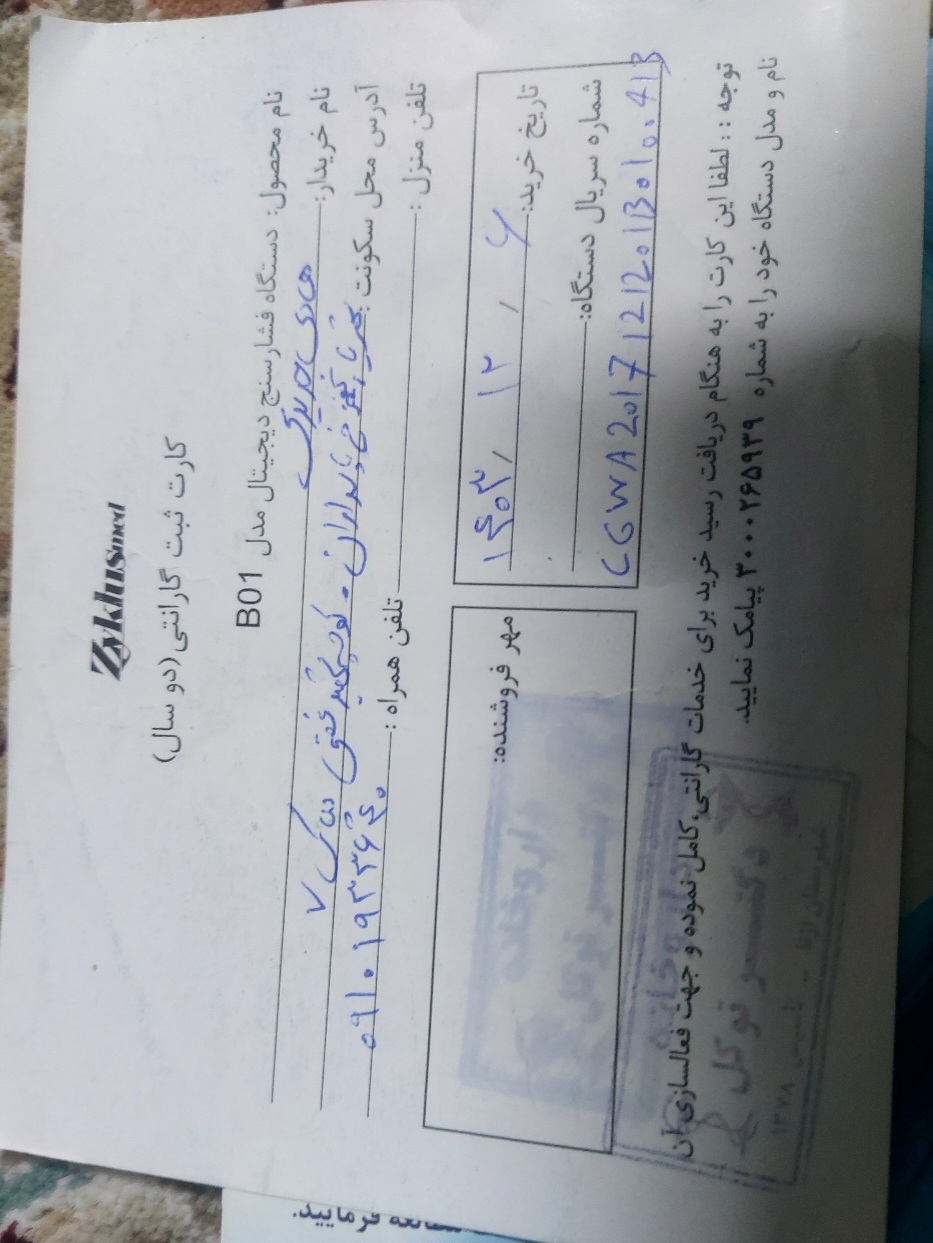 Zyklusmed
کارت ثبت گارانتی (دو سال)
نام محصول: دستگاه فشارسنج دیجیتال مدل B01
نام خریدار: هادی
آدرس محل سکونت: پاسداران - کوچه شهید پلاک ۷
تلفن منزل: تلفن همراه: ۰۹۱۰۱۹۳۳۶۴۰
تاریخ خرید: ۱۴۰۳/۱۲/۶
شماره سریال دستگاه:
CGWA2017121201B010.41B
مهر فروشنده:
داروخانه
دکتر توکل
توجه :: لطفا این کارت را به هنگام دریافت رسید خرید برای خدمات گارانتی، کامل نموده و جهت فعالسازی آن
نام و مدل دستگاه خود را به شماره ۳۰۰۰۲۶۵۹۳۹ پیامک نمایید.
داروخانه
دکتر توکل
۱۳۷۸
فرمایید.